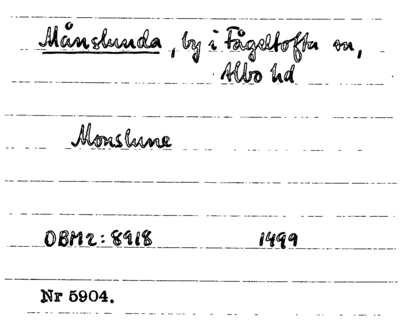 Månslunda, by i Fågeltofta sn,
Albo hd
Monslune
OBM2: 8918 1499
Nr 5904.